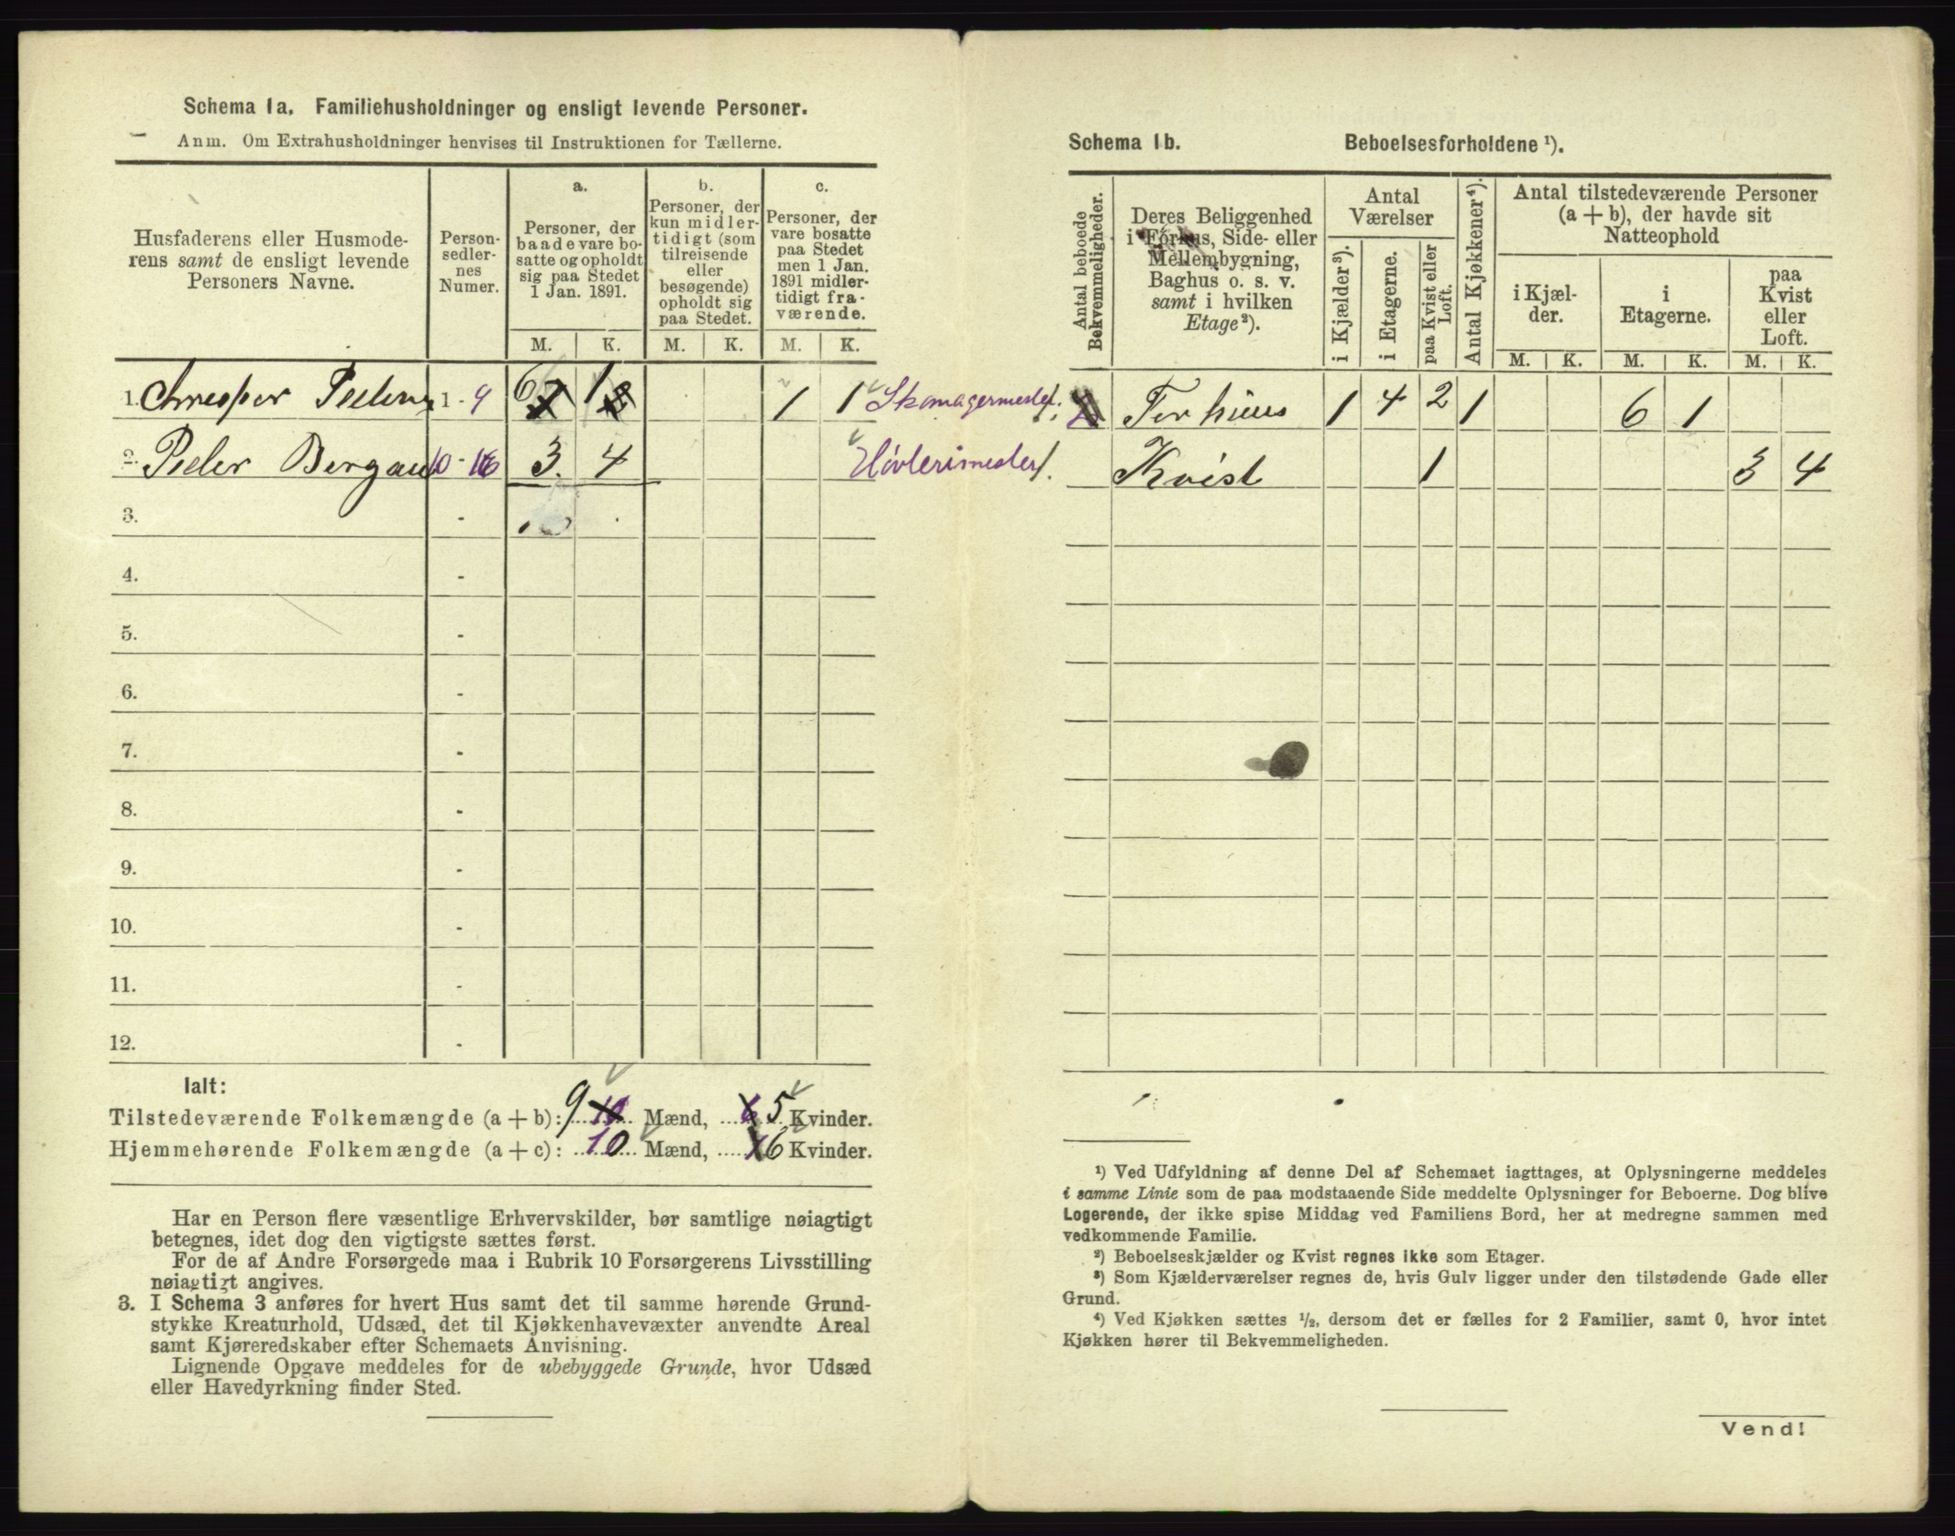 Schema 1a. Familiehusholdninger og ensligt levende Personer.
Anm. Om Extrahusholdninger henvises til Instruktionen for Tællerne.
Husfaderens eller Husmode-
rens samt de ensligt levende
Personers Navne.
Person-
sedler-
nes
Numer.
a.
Personer, der
baade vare bo-
satte og opholdt
sig paa Stedet
1 Jan. 1891.
b.
Personer, der
kun midler-
tidigt (som
tilreisende
eller
besøgende)
opholdt sig
paa Stedet.
c.
Personer, der
vare bosatte
paa Stedet
men 1 Jan.
1891 midler-
tidigt fra-
værende.
M. K. M. K. M. K.
1. Peder 1 - 9 6 1 1 1 Skomagermester
2. Peder Bergan 10 - 16 3. 4 
3. -
4. -
5. -
6. -
7. -
8. -
9. -
10. -
11. -
12. -
Ialt:
Tilstedeværende Folkemængde (a + b): 9 10 Mænd, 6 5 Kvinder.
Hjemmehørende Folkemængde (a + c): 10 Mænd, 6 Kvinder.
Har en Person flere væsentlige Erhvervskilder, bør samtlige nøiagtigt
betegnes, idet dog den vigtigste sættes først.
For de af Andre Forsørgede maa i Rubrik 10 Forsørgerens Livsstilling
nøiagtigt angives.
3. I Schema 3 anføres for hvert Hus samt det til samme hørende Grund-
stykke Kreaturhold, Udsæd, det til Kjøkkenhavevæxter anvendte Areal
samt Kjøreredskaber efter Schemaets Anvisning.
Lignende Opgave meddeles for de ubebyggede Grunde, hvor Udsæd
eller Havedyrkning finder Sted.
Schema 1b. Beboelsesforholdene ¹).
Antal beboede
Bekvemmeligheder.
Deres Beliggenhed
i Forhus, Side- eller
Mellembygning,
Baghus o. s. v.
samt i hvilken
Etage²).
Antal
Værelser
i Kjælder³).
i Etagerne.
paa Kvist eller
Loft.
Antal Kjøkkener⁴).
Antal tilstedeværende Personer
(a + b), der havde sit
Natteophold
i Kjæl-
der.
i
Etagerne.
paa
Kvist
eller
Loft.
M. K. M. K. M. K.
Forhuus 1 4 2 1 6 1
Kvist 1 3 4
¹) Ved Udfyldning af denne Del af Schemaet iagttages, at Oplysningerne meddeles
i samme Linie som de paa modstaaende Side meddelte Oplysninger for Beboerne. Dog blive
Logerende, der ikke spise Middag ved Familiens Bord, her at medregne sammen med
vedkommende Familie.
²) Beboelseskjælder og Kvist regnes ikke som Etager.
³) Som Kjælderværelser regnes de, hvis Gulv ligger under den tilstødende Gade eller
Grund.
⁴) Ved Kjøkken sættes ½, dersom det er fælles for 2 Familier, samt 0, hvor intet
Kjøkken hører til Bekvemmeligheden.
Vend!